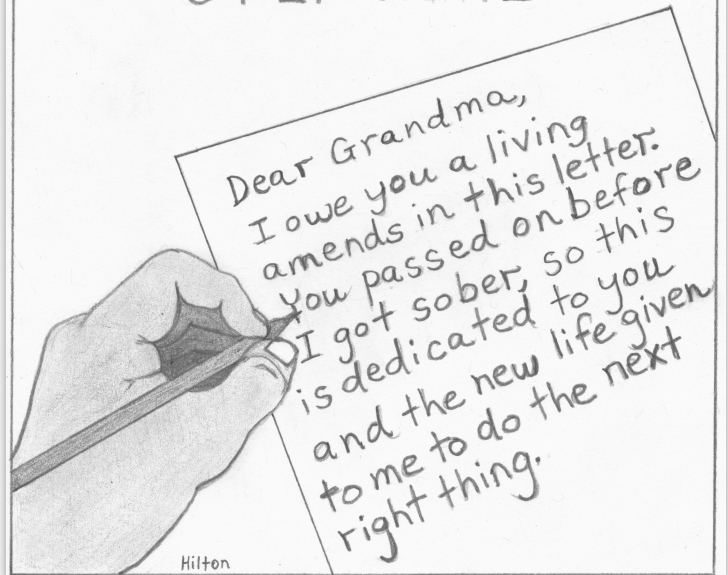 Dear Grandma,
I owe you a living
amends in this letter.
You passed on before
I got sober, so this
is dedicated to you
and the new life given
to me to do the next
right thing.
Hilton